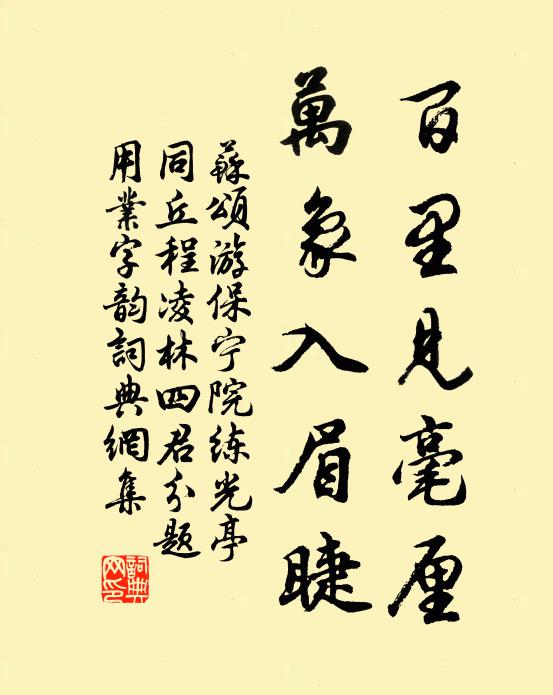 百里见毫厘
萬象入眉睫
蘇頌游保宁院练光亭
同丘程凌林四君分题
用業字韵詞典網集
詞典
网印